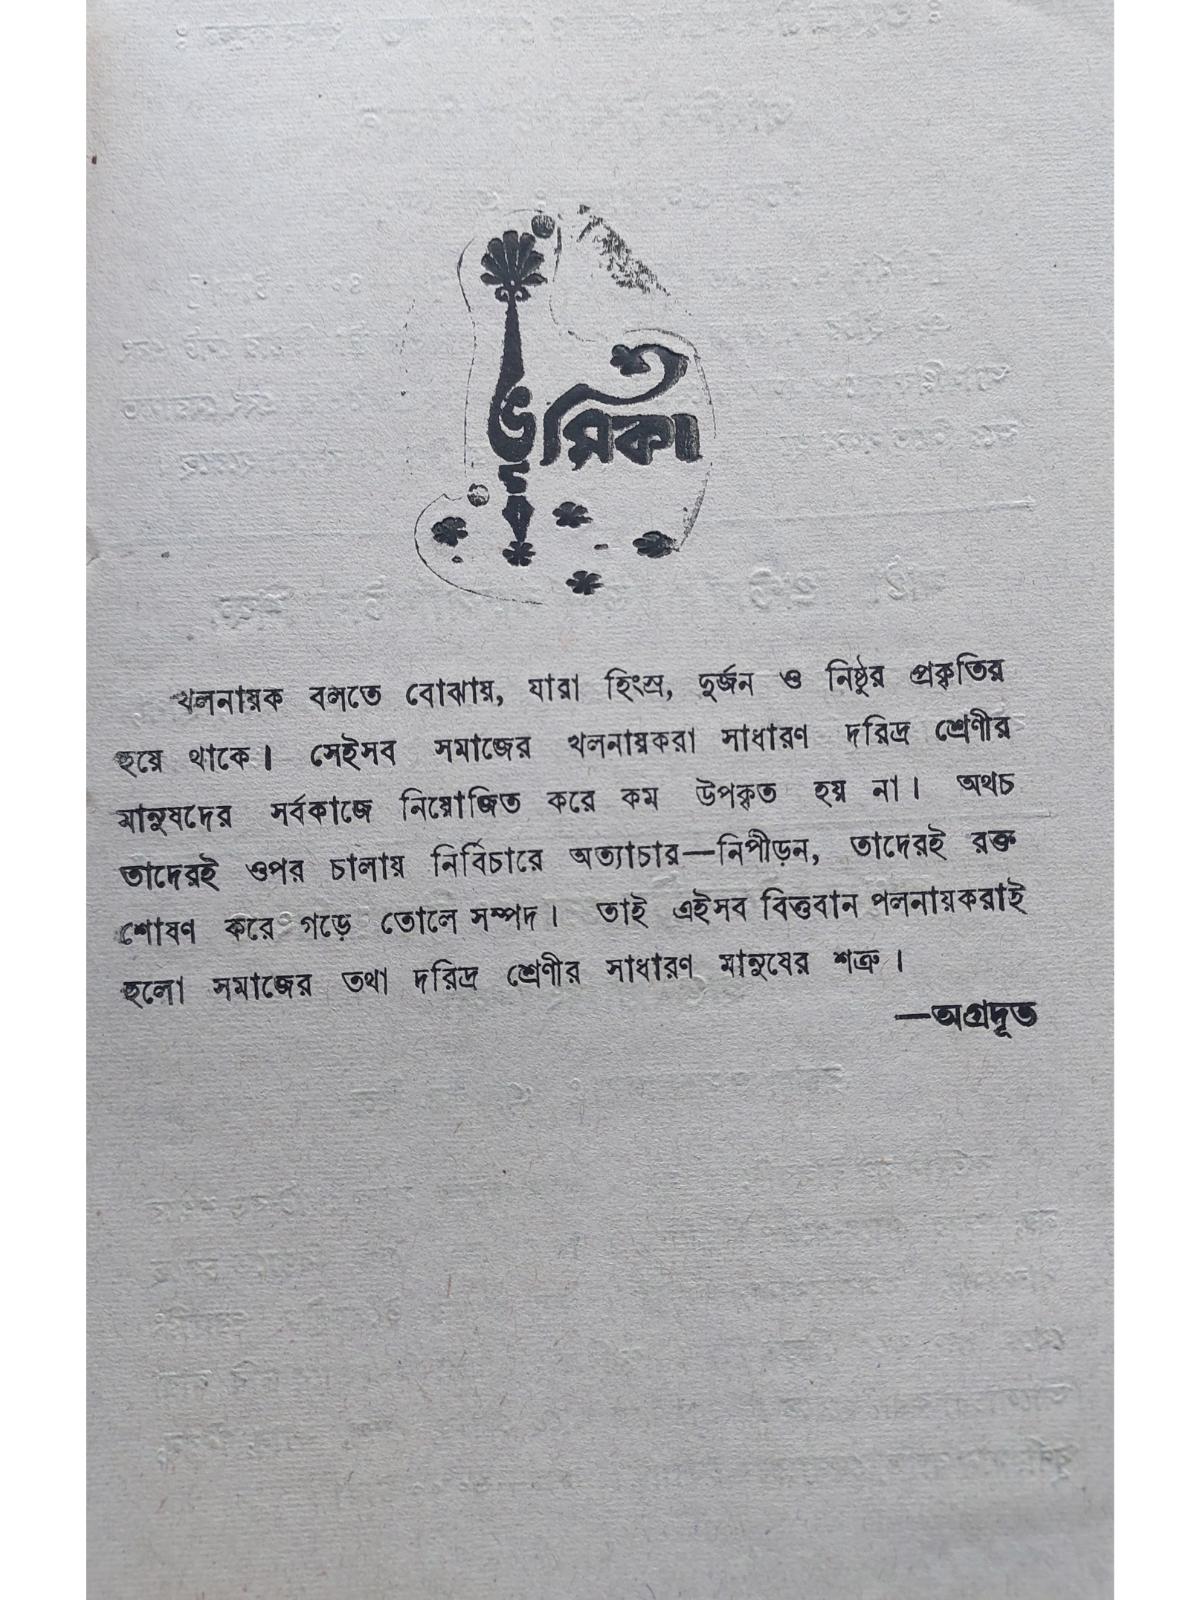 ভূমিকা
খলনায়ক বলতে বোঝায়, যারা হিংস্র, দুর্জন ও নিষ্ঠুর প্রকৃতির
হয়ে থাকে। সেইসব সমাজের খলনায়করা সাধারণ দরিদ্র শ্রেণীর
মানুষদের সর্বকাজে নিয়োজিত করে কম উপকৃত হয় না। অথচ
তাদেরই ওপর চালায় নির্বিচারে অত্যাচার—নিপীড়ন, তাদেরই রক্ত
শোষণ করে গড়ে তোলে সম্পদ। তাই এইসব বিত্তবান পলনায়করাই
হলো সমাজের তথা দরিদ্র শ্রেণীর সাধারণ মানুষের শত্রু।
—অগ্রদূত